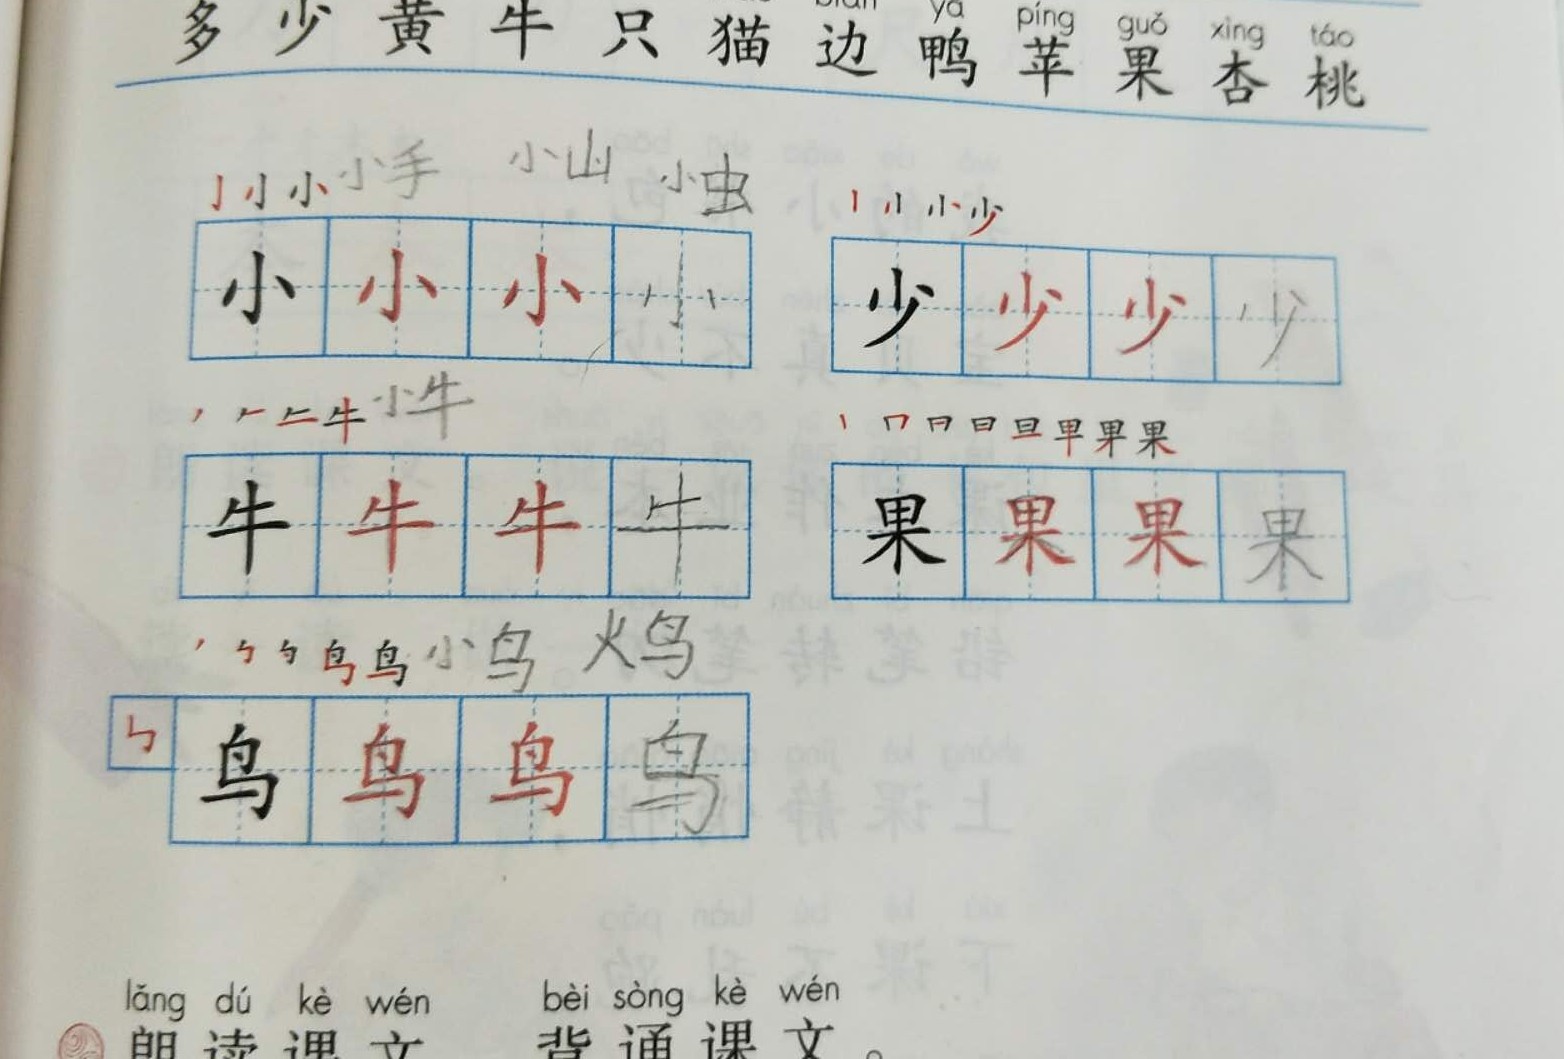 yā píng guǒ xìng táo
多 少 黄 牛 只 猫 边 鸭 苹 果 杏 桃
小 小手 小山 小虫
小 小 小 小
少
少 少 少 少
牛 小牛
牛 牛 牛 牛
果
果 果 果 果
鸟 鸟 小鸟 火鸟
㇉ 鸟 鸟 鸟 鸟
lǎng dú kè wén bèi sòng kè wén
朗 读 课 文 背 诵 课 文 。